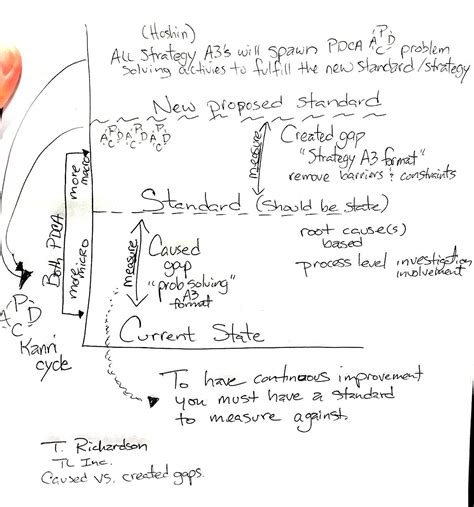 (Hoshin)
All Strategy A3's will spawn PDCA A P D C problem
solving activies to fulfill the new standard/strategy
New proposed standard
A P D C A P D C A P D C
measure
Created gap
"Strategy A3 format"
remove barriers & constraints
Both PDCA
more macro
more micro
Standard (should be state)
root cause(s)
based
process level investigation
involvement
measure
Caused
gap
"prob solving"
A3
format
Current State
A P D C
Kanri
cycle
To have continuous improvement
you must have a standard
to measure against.
T. Richardson
TL Inc.
Caused vs. created gaps.